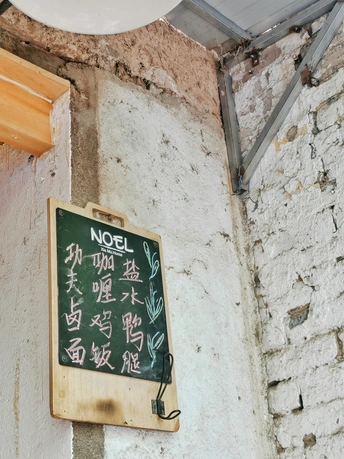 NOEL
功夫卤面
咖喱鸡饭
盐水鸭腿